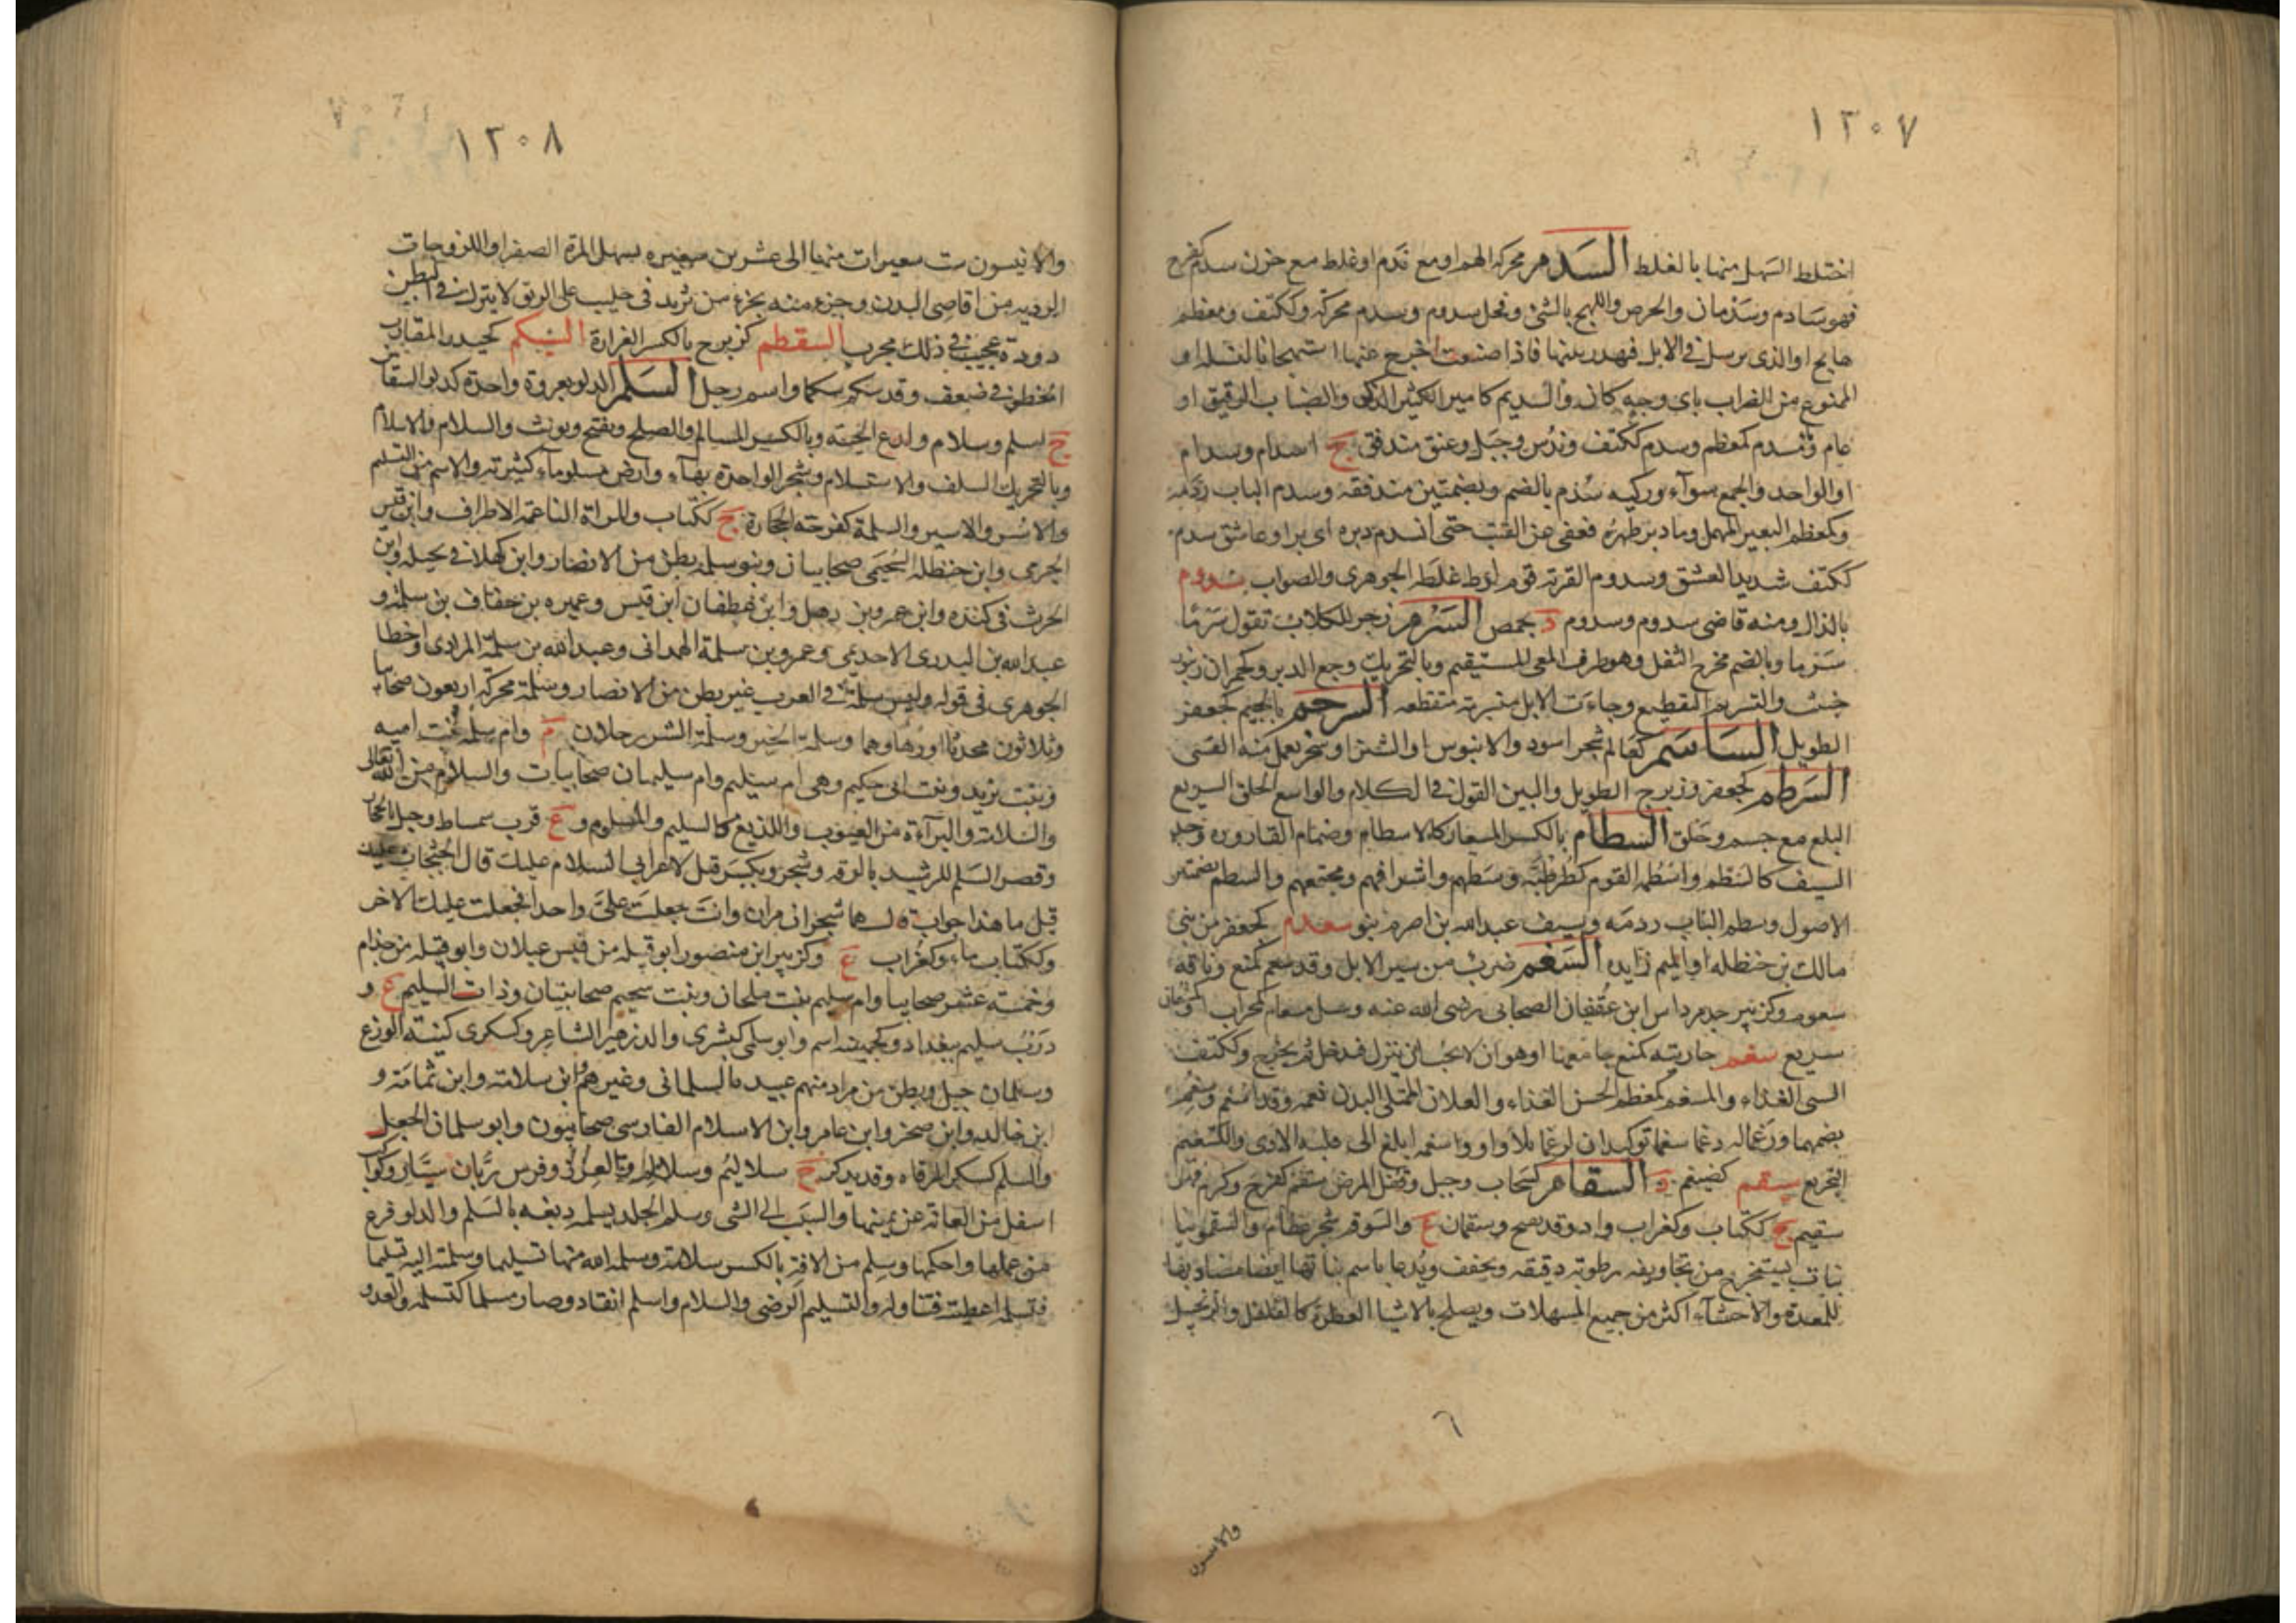 ١٣٠٧
اختلط السهل منها بالغلظ السدم محركة الهم او مع ندم او غلظ مع حزن سدم كفرح
فهو سادم وسدمان والحرص واللهج بالشئ وفحل سدوم وسدم محركة وككتف ومعظم
هايج او الذى يرسل فى الابل فيهدر بينها فاذا ضبعت اخرج عنها استهجانا لنسله او
الممنوع من الضراب باى وجه كان والسديم كامير الكثير الذكر والضباب الرقيق او
عام ومسدم كمعظم وسدم ككتف وندس وجبل وعنق مندفق ج اسدام وسدام
او الواحد والجمع سوآء وركيه سدم بالضم وبضمتين مندفقه وسدم الباب ردمه
وكمعظم البعير المهمل وما دبر ظهره فعفى عن القتب حتى انسدم دبره اى برا وعاشق سدم
ككتف شديد العشق وسدوم القرية قوم لوط غلط الجوهرى والصواب سدوم
بالذال ومنه قاضى سدوم وسدوم د بحمص السرم زجر للكلاب تقول سرما
سرما وبالضم مخرج الثفل وهو طرف المعى المستقيم وبالتحريك وجع الدبر وكحمران زنبور
خبيث والتسريم التقطيع وجاءت الابل متسرمة متقطعه السرجم بالجيم كجعفر
الطويل الساسم كعالم شجر اسود والابنوس او الشيز او شجر يعمل منه القسى
السرطم كجعفر وزبرج الطويل والبين القول فى الكلام والواسع الحلق السريع
البلع مع جسم وخلق السطام بالكسر المسعار كالاسطام وصمام القاروره وحد
السيف كالسطم واسطمة القوم كطرطبة وسطهم واشرافهم ومجتمعهم والسطم بضمتين
الاصول وسطم الباب ردمه وسيف عبد الله بن اصرم بنو سعدم كجعفر من بنى
مالك بن حنظله او الميم زايده السعم ضرب من سير الابل وقد سعم كمنع وناقة
سعوم وكزبير جد مرداس ابن عقفان الصحابى رضى الله عنه وجمل مسعام كمحراب
سريع سغم جاريته كمنع جامعها او هو ان لا يحب ان ينزل فيدخل ثم يخرج وككتف
السى الغذاء والمسغم كمعظم الحسن الغذاء والغلام الممتلى البدن نعمه وقد اسغم وسغم
بضمهما ورغما له دغما سغما توكيدان لرغما بلا واو واسغمه ابلغ الى قلبه الاذى والتسغيم
التجريع سقم كضيغم د السقام كسحاب وجبل وقفل المرض سقم كفرح وكرم فهو
سقيم ج ككتاب وكغراب واد وقد يفتح وسقمان ع والسوقم شجر عظام والسقمونيا
نبات يستخرج من تجاويفه رطوبه دقيقه وتجفف وتدعا باسم نباتها ايضا مضادتها
للمعدة والاحشآء اكثر من جميع المسهلات ويصلح بالاشيا العطرة كالفلفل والزنجبيل
٦
والانيسون
١٢٠٨
والانيسون ست شعيرات منها الى عشرين شعيره يسهل المرة الصفرا واللزوجات
الرديه من اقاصى البدن وجزء منه بجزء من تربد فى حليب على الريق لا يترك فى البطن
دودة عجيب فى ذلك مجرب السقطم كزبرج بالكسر الغرارة السيكم كحيدر المقارب
الخطو فى ضعف وقد سكم سكما واسم رجل السلم الدلو بعروة واحدة كدلو السقائين
ج اسلم وسلام ولدع الحية وبالكسر المسالم والصلح ويفتح ويونث والسلام والاسلام
وبالتحريك السلف والاستسلام وشجر الواحدة بهاء وارض مسلوماء كثيرته والاسم من التسليم
والاسر والاسير والسلمة كفرحة الحجارة ج ككتاب والمراة الناعمة الاطراف وابن قيس
الجرمى وابن حنظلة السحيمى صحابيان وبنو سلمه بطن من الانصار وابن كهلان فى بجيله وابن
الحرث فى كنده وابن عمرو بن ذهل وابن غطفان ابن قيس وعميره بن خفاف بن سلمة و
عبد الله بن سلمة البدرى الاحدى وعمرو بن سلمة الهمدانى وعبد الله بن سلمة المرادى واخطا
الجوهرى فى قوله وليس سلمة فى العرب غير بطن من الانصار وسلمة محركة اربعون صحابيا
وثلاثون محدثا او زهاوهما وسلمة الخير وسلمة الشر رجلان م وام سلمة بنت اميه
وبنت يزيد وبنت ابى حكيم وهى ام سليم وام سليمان صحابيات والسلام من الله تعالى
والسلامة والبرآءة من العيوب واللديغ كالسليم والمسلوم و ع قرب سميساط وجبل بالحجاز
وقصر السلم للرشيد بالرقه وشجر ويكسر قيل لاعرابى السلام عليك قال الجثجاث عليك
قيل ما هذا جواب قال هما شجران مران وانت جعلت على واحدا فجعلت عليك الاخر
وككتاب ماء وكغراب ع وكزبير ابن منصور ابو قبيله من قيس عيلان وابو قبيله من جذام
وخمسه عشر صحابيا وام سليم بنت ملحان وبنت سحيم صحابيتان وذات السليم ع و
درب سليم ببغداد وكجهينه اسم وابو سلمى كبشرى والد زهير الشاعر وكسكرى كنيته الوزغ
وسلمان جبل وبطن من مراد منهم عبيده السلمانى وغيرهم وابن سلامة وابن ثمامة و
ابن خالد وابن صخر وابن عامر وابن الاسلام الفارسى صحابيون وابو سلمان الجعل
والسلم كسكر المرقاه وقد يذكر ج سلاليم وسلالم والعرز وفرس زبان بن سيار وكواكب
اسفل من العانة عن يمينها والسبب الى الشى وسلم الجلد يسلمه دبغه بالسلم والدلو فرغ
من عملها واحكمها وسلم من الافة بالكسر سلامة وسلمه الله منها تسليما وسلمته اليه تسليما
فتسلمه اعطيته فتناوله والتسليم الرضى والسلام واسلم انقاد وصار مسلما كتسلم والعدو